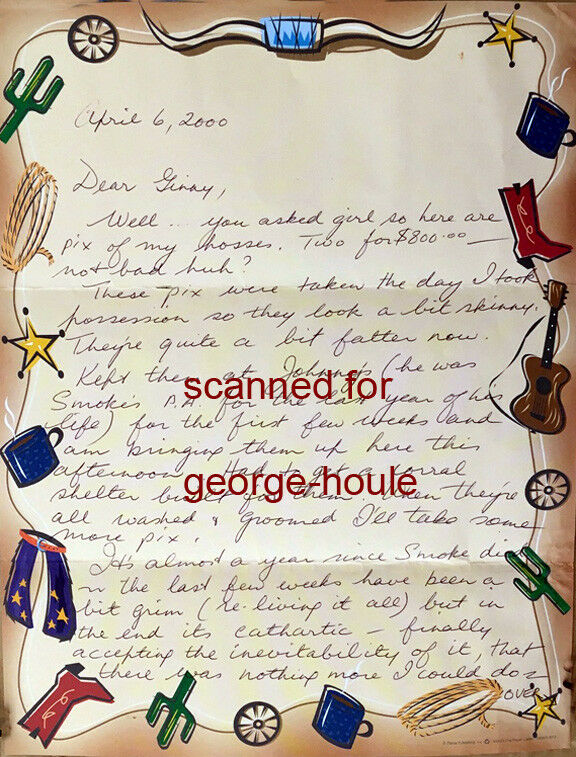 April 6, 2000
Dear Ginny,
Well... you asked girl so here are
pix of my hosses. Two for $800.00 —
not bad huh?
These pix were taken the day I took
possession so they look a bit skinny.
They're quite a bit fatter now.
Kept them at Johnny's (he was
scanned for
Smoke's P.A. for the last year of his
life) for the first few weeks and
am bringing them up here this
afternoon. Had to get a corral
george-houle
shelter built for them. When they're
all washed & groomed I'll take some
more pix.
It's almost a year since Smoke die
n the last few weeks have been a
bit grim (re-living it all) but in
the end its cathartic — finally
accepting the inevitability of it, that
there was nothing more I could do
over